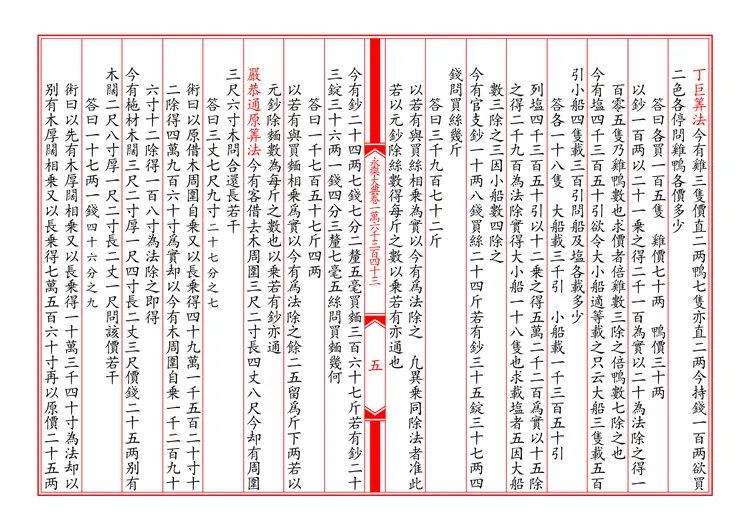 丁巨筭法今有雞三隻價直二兩鴨七隻亦直二兩今持錢一百兩欲買
二色各停問雞鴨各價多少
答曰各買一百五隻 雞價七十兩 鴨價三十兩
以鈔一百兩以二十一乘之得二千一百為實以二十為法除之得一
百零五隻乃雞鴨數也求價者倍雞數三除之倍鴨數七除之也
今有塩四千三百五十引欲令大小船適等載之只云大船三隻載五百
引小船四隻載三百引問船及塩各載多少
答各一十八隻 大船載三千引 小船載一千三百五十引
列塩四千三百五十引以十二乘之得五萬二千二百爲實以十五除
之得二千九百為法除實得大小船一十八隻也求載塩者五因大船
數三除之三因小船數四除之
今有官支鈔一十兩八錢買絲二十四斤若有鈔三十五錠三十七兩四
錢問買絲幾斤
答曰三千九百七十二斤
以若有與買絲相乘為實以今有為法除之 凢異乘同除法者准此
若以元鈔除絲數得每斤之數以乘若有亦通也
永樂大典卷一萬六千三百四十三
五
今有鈔二十四兩七錢七分二釐五毫買麵三百六十七斤若有鈔二十
三錠三十六兩一錢四分三釐七毫五絲問買麵幾何
答曰一千七百五十七斤四兩
以若有與買麵相乘爲實以今有爲法除之餘二五留爲斤下兩若以
元鈔除麵數為每斤之數也以乘若有鈔亦通
嚴恭通原筭法今有客借去木周圍三尺二寸長四丈八尺今却有周圍
三尺六寸木問合還長若干
答曰三丈七尺九寸二十七分寸之七
術曰以原借木周圍自乘又以長乘得四十九萬一千五百二十寸十
二除得四萬九百六十寸爲實却以今有木周圍自乘一千二百九十
六寸十二除得一百八寸為法除之即得
今有栀材木闊三尺二寸厚一尺四寸長二丈三尺價錢二十五兩别有
木闊二尺八寸厚一尺二寸長二丈一尺問該價若干
答曰一十七兩一錢四十六分之九
術曰以先有木厚闊相乘又以長乘得一十萬三千四十寸為法却以
别有木厚闊相乘又以長乘得七萬五百六十寸再以原價二十五兩